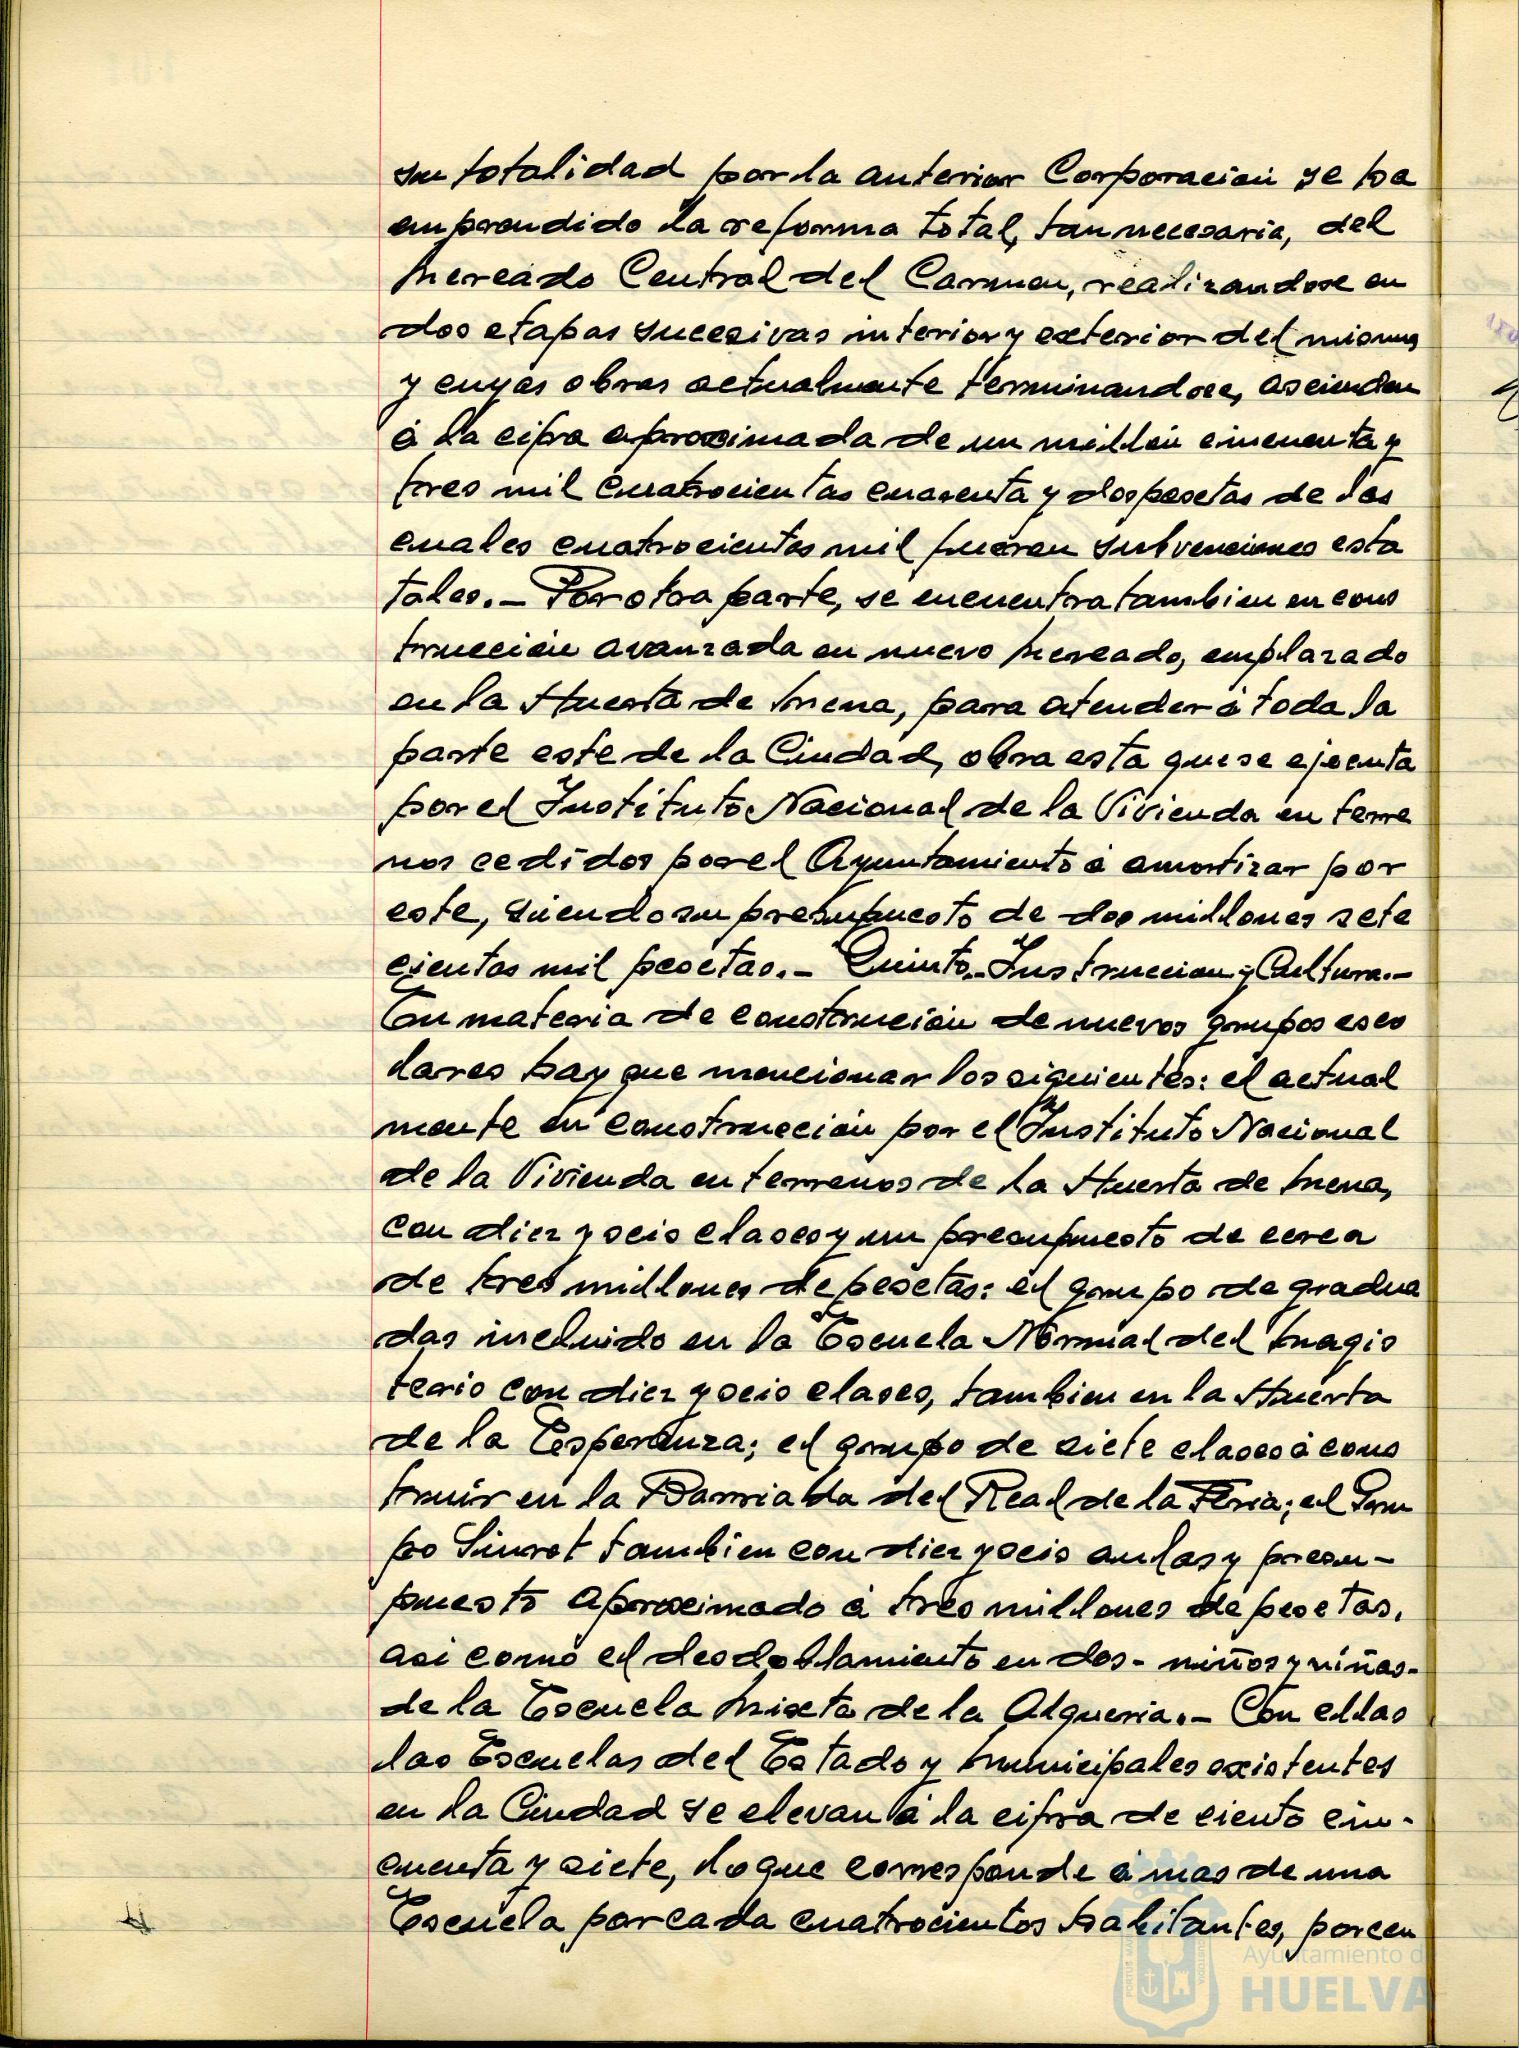 su totalidad por la anterior Corporación se ha
emprendido la reforma total, tan necesaria, del
Mercado Central del Carmen, realizandose en
dos etapas sucesivas interior y exterior del mismo
y cuyas obras actualmente terminandose, ascienden
á la cifra aproximada de un millón cincuenta y
tres mil cuatrocientas cuarenta y dos pesetas de las
cuales cuatrocientas mil fueron subvenciones esta
tales.- Por otra parte, se encuentra tambien en cons
trucción avanzada un nuevo Mercado, emplazado
en la Huerta de Mena, para atender á toda la
parte este de la Ciudad, obra esta que se ejecuta
por el Instituto Nacional de la Vivienda en terre
nos cedidos por el Ayuntamiento á amortizar por
este, siendo su presupuesto de dos millones sete
cientas mil pesetas.- Quinto.- Instruccion y Cultura.-
En materia de construción de nuevos grupos esco
lares hay que mencionar los siguientes: el actual
mente en construcción por el Instituto Nacional
de la Vivienda en terrenos de la Huerta de Mena,
con diez y seis clases y un presupuesto de cerca
de tres millones de pesetas: el grupo de gradua
das incluido en la Escuela Normal del Magis
terio con diez y seis clases, tambien en la Huerta
de la Esperanza; el grupo de siete clases á cons
truir en la Barriada del Real de la Feria; el Gru
po Siurot tambien con diez y seis aulas y presu-
puesto aproximado á tres millones de pesetas,
asi como el desdoblamiento en dos- niños y niñas-
de la Escuela Mixta de la Alqueria.- Con ellas
las Escuelas del Estado y Municipales existentes
en la Ciudad se elevan á la cifra de ciento cin-
cuenta y siete, lo que corresponde á mas de una
Escuela por cada cuatrocientos habitantes, porcen
Ayuntamiento d
HUELVA